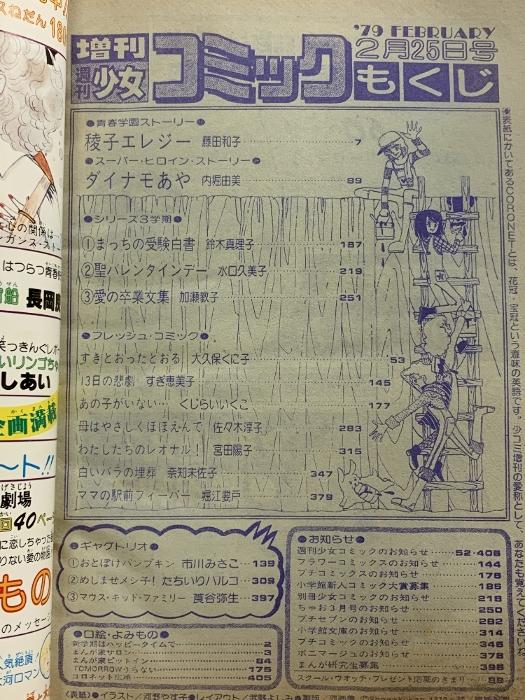 '79 FEBRUARY
2月25日号
増刊
週刊
少女
コミック
もくじ
●青春学園ストーリー●
稜子エレジー 藤田和子 7
●スーパー・ヒロイン・ストーリー●
ダイナモあや 内堀由美 89
●シリーズ3学期●
①まっちの受験白書 鈴木真理子 187
②聖バレンタインデー 水口久美子 219
③愛の卒業文集 加瀬教子 251
●フレッシュ・コミック●
すきとおったとおる 大久保くに子 53
13日の悲劇 すぎ恵美子 145
あの子がいない… くじらいいくこ 177
母はやさしくほほえんで 佐々木淳子 283
わたしたちのレオナル! 宮田陽子 315
白いバラの埋葬 奈知未佐子 347
ママの駅前フィーバー 堀江要戸 379
●ギャグトリオ●
①おとぼけパンプキン 市川みさこ 139
②めしませメシチ! たちいりハルコ 309
③マウス・キッド・ファミリー 莨谷弥生 397
●口絵・よみもの●
新学期はハッピータイムで 2
まんが家サロン 3
まんが家ピットイン 84
TOMORROWうらない 175
コロネット広場 405
●お知らせ●
週刊少女コミックのお知らせ 52・408
フラワーコミックスのお知らせ 144
プチコミックスのお知らせ 176
小学館新人コミック大賞募集 186
別冊少女コミックのお知らせ 218
ちゃお3月号のお知らせ 250
プチセブンのお知らせ 282
小学館文庫のお知らせ 314
プチコミックのお知らせ 346
ボニマージュのお知らせ 378
まんが研究生募集 396
スクール・ウオッチ・プレゼント応募のきまり 88
★表紙にかいてあるCORONETとは、花冠・宝冠という意味の英語です。少コミ増刊の愛称として、あなたも覚えてくださいね。
はつらつ青春
長岡
しあい
企画満載
ート!!
劇場
40ペー
もの
のメッセージ
人気絶頂
大河ロマン